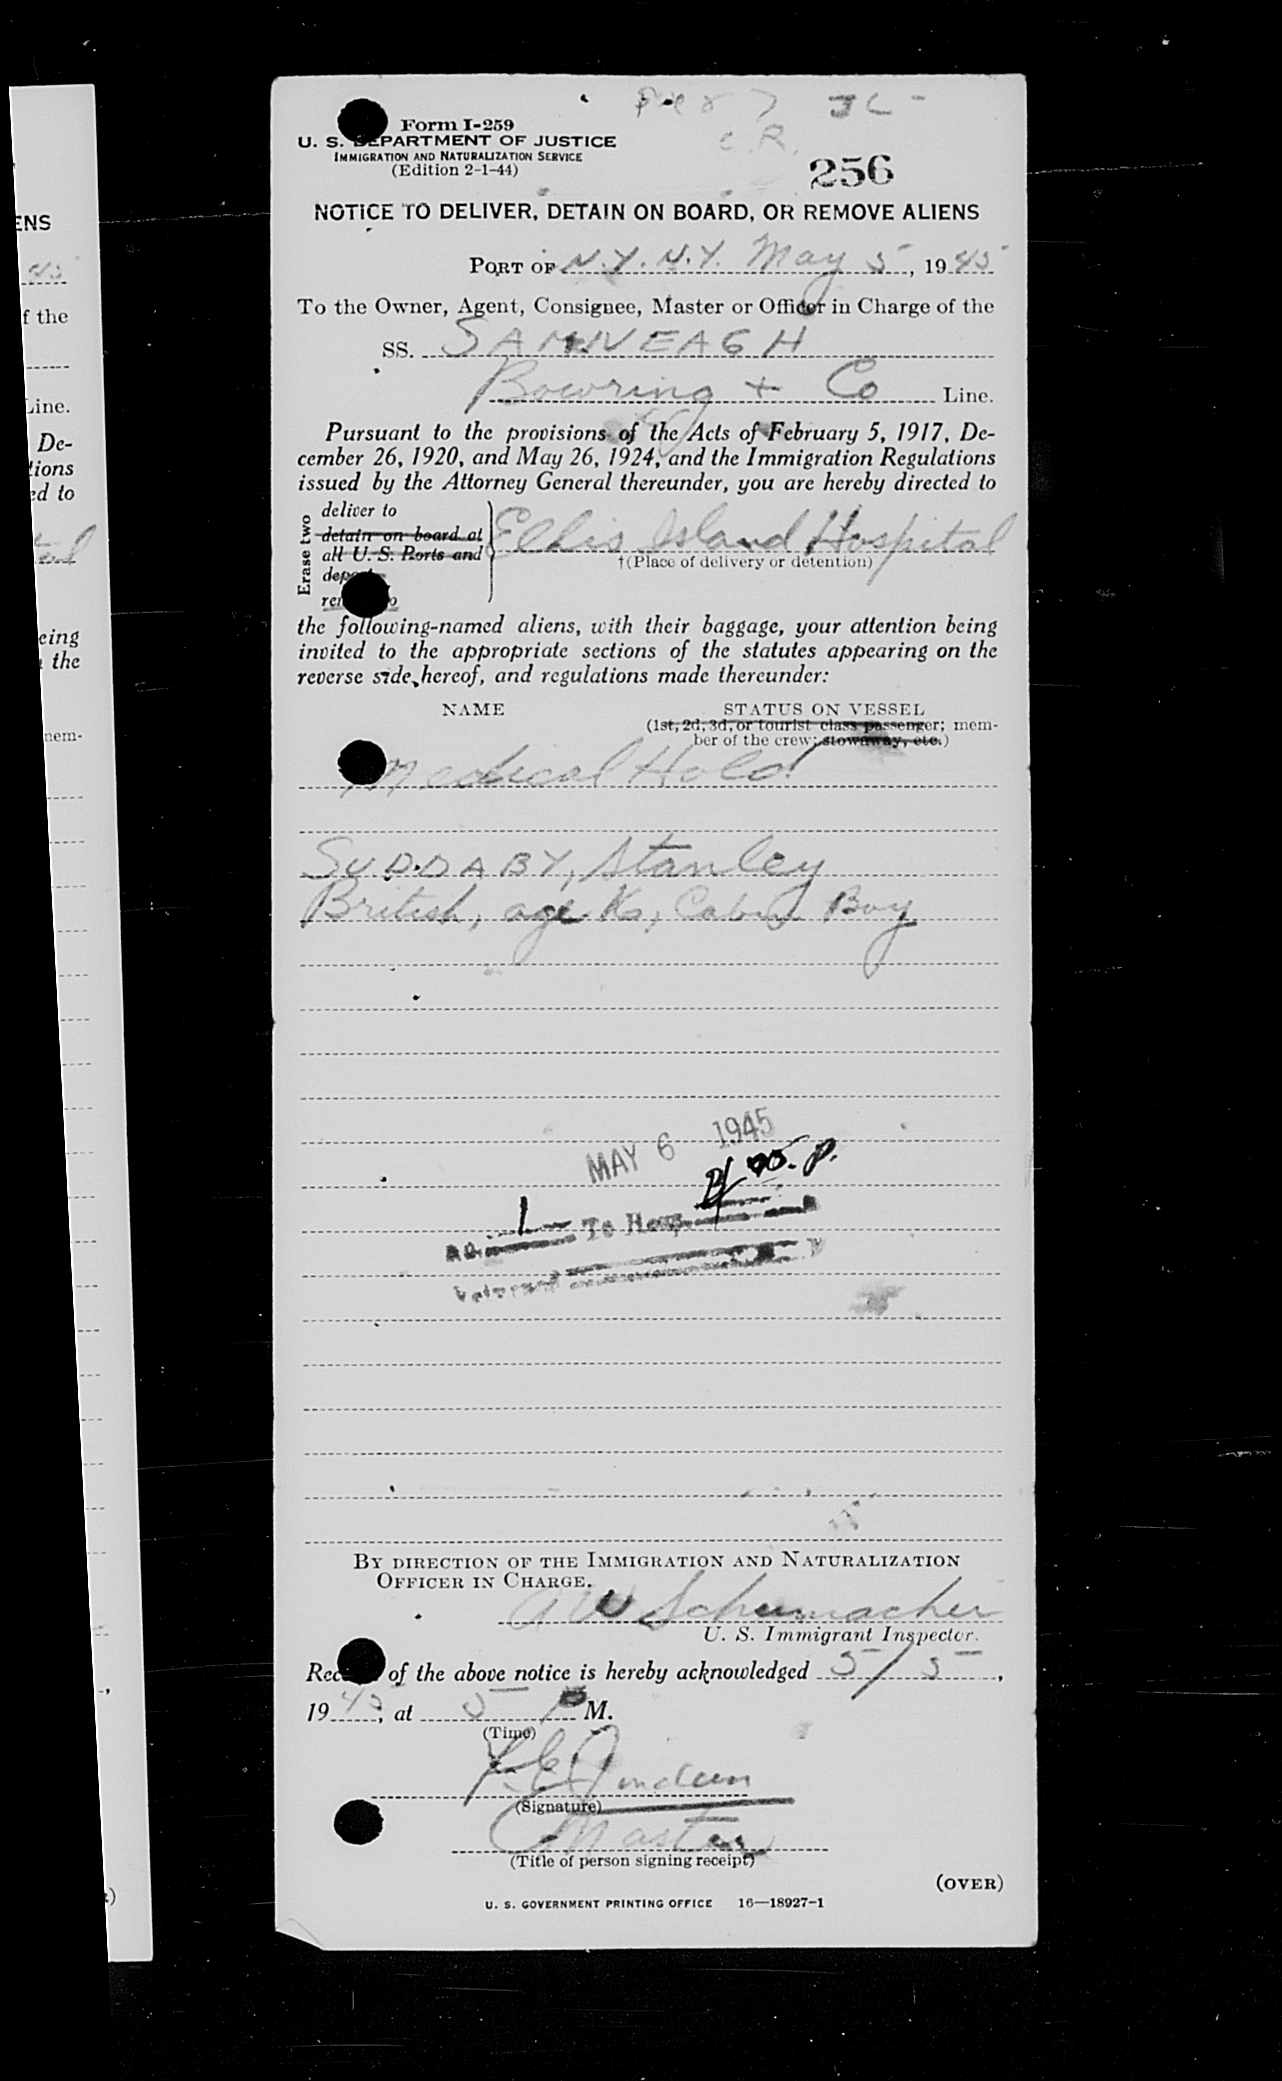 Pier 7 JC -
C.R.
Form I-259
U. S. DEPARTMENT OF JUSTICE
IMMIGRATION AND NATURALIZATION SERVICE
(Edition 2-1-44)
256
NOTICE TO DELIVER, DETAIN ON BOARD, OR REMOVE ALIENS
PORT OF N.Y. N.Y. May 5, 1945
To the Owner, Agent, Consignee, Master or Officer in Charge of the
SS. SAMNVEAGH
Bowring + Co Line.
Pursuant to the provisions of the Acts of February 5, 1917, De-
cember 26, 1920, and May 26, 1924, and the Immigration Regulations
issued by the Attorney General thereunder, you are hereby directed to
Erase two
deliver to
detain on board at
all U. S. Ports and
deport
remove to
Ellis Island Hospital
†(Place of delivery or detention)
the following-named aliens, with their baggage, your attention being
invited to the appropriate sections of the statutes appearing on the
reverse side hereof, and regulations made thereunder:
NAME STATUS ON VESSEL
(1st, 2d, 3d, or tourist class passenger; mem-
ber of the crew; stowaway, etc.)
Medical Hold
SUDDABY, Stanley
British, age Cabin Boy
MAY 6 1945
P.
1 To Hosp.
BY DIRECTION OF THE IMMIGRATION AND NATURALIZATION
OFFICER IN CHARGE.
A W Schumacher
U. S. Immigrant Inspector.
Receipt of the above notice is hereby acknowledged 5/5,
1945, at 5 P M.
(Time)
(Signature)
Master
(Title of person signing receipt)
(OVER)
U. S. GOVERNMENT PRINTING OFFICE 16—18927-1
ENS
45
f the
Line.
De-
tions
ed to
tal
eing
the
nem-